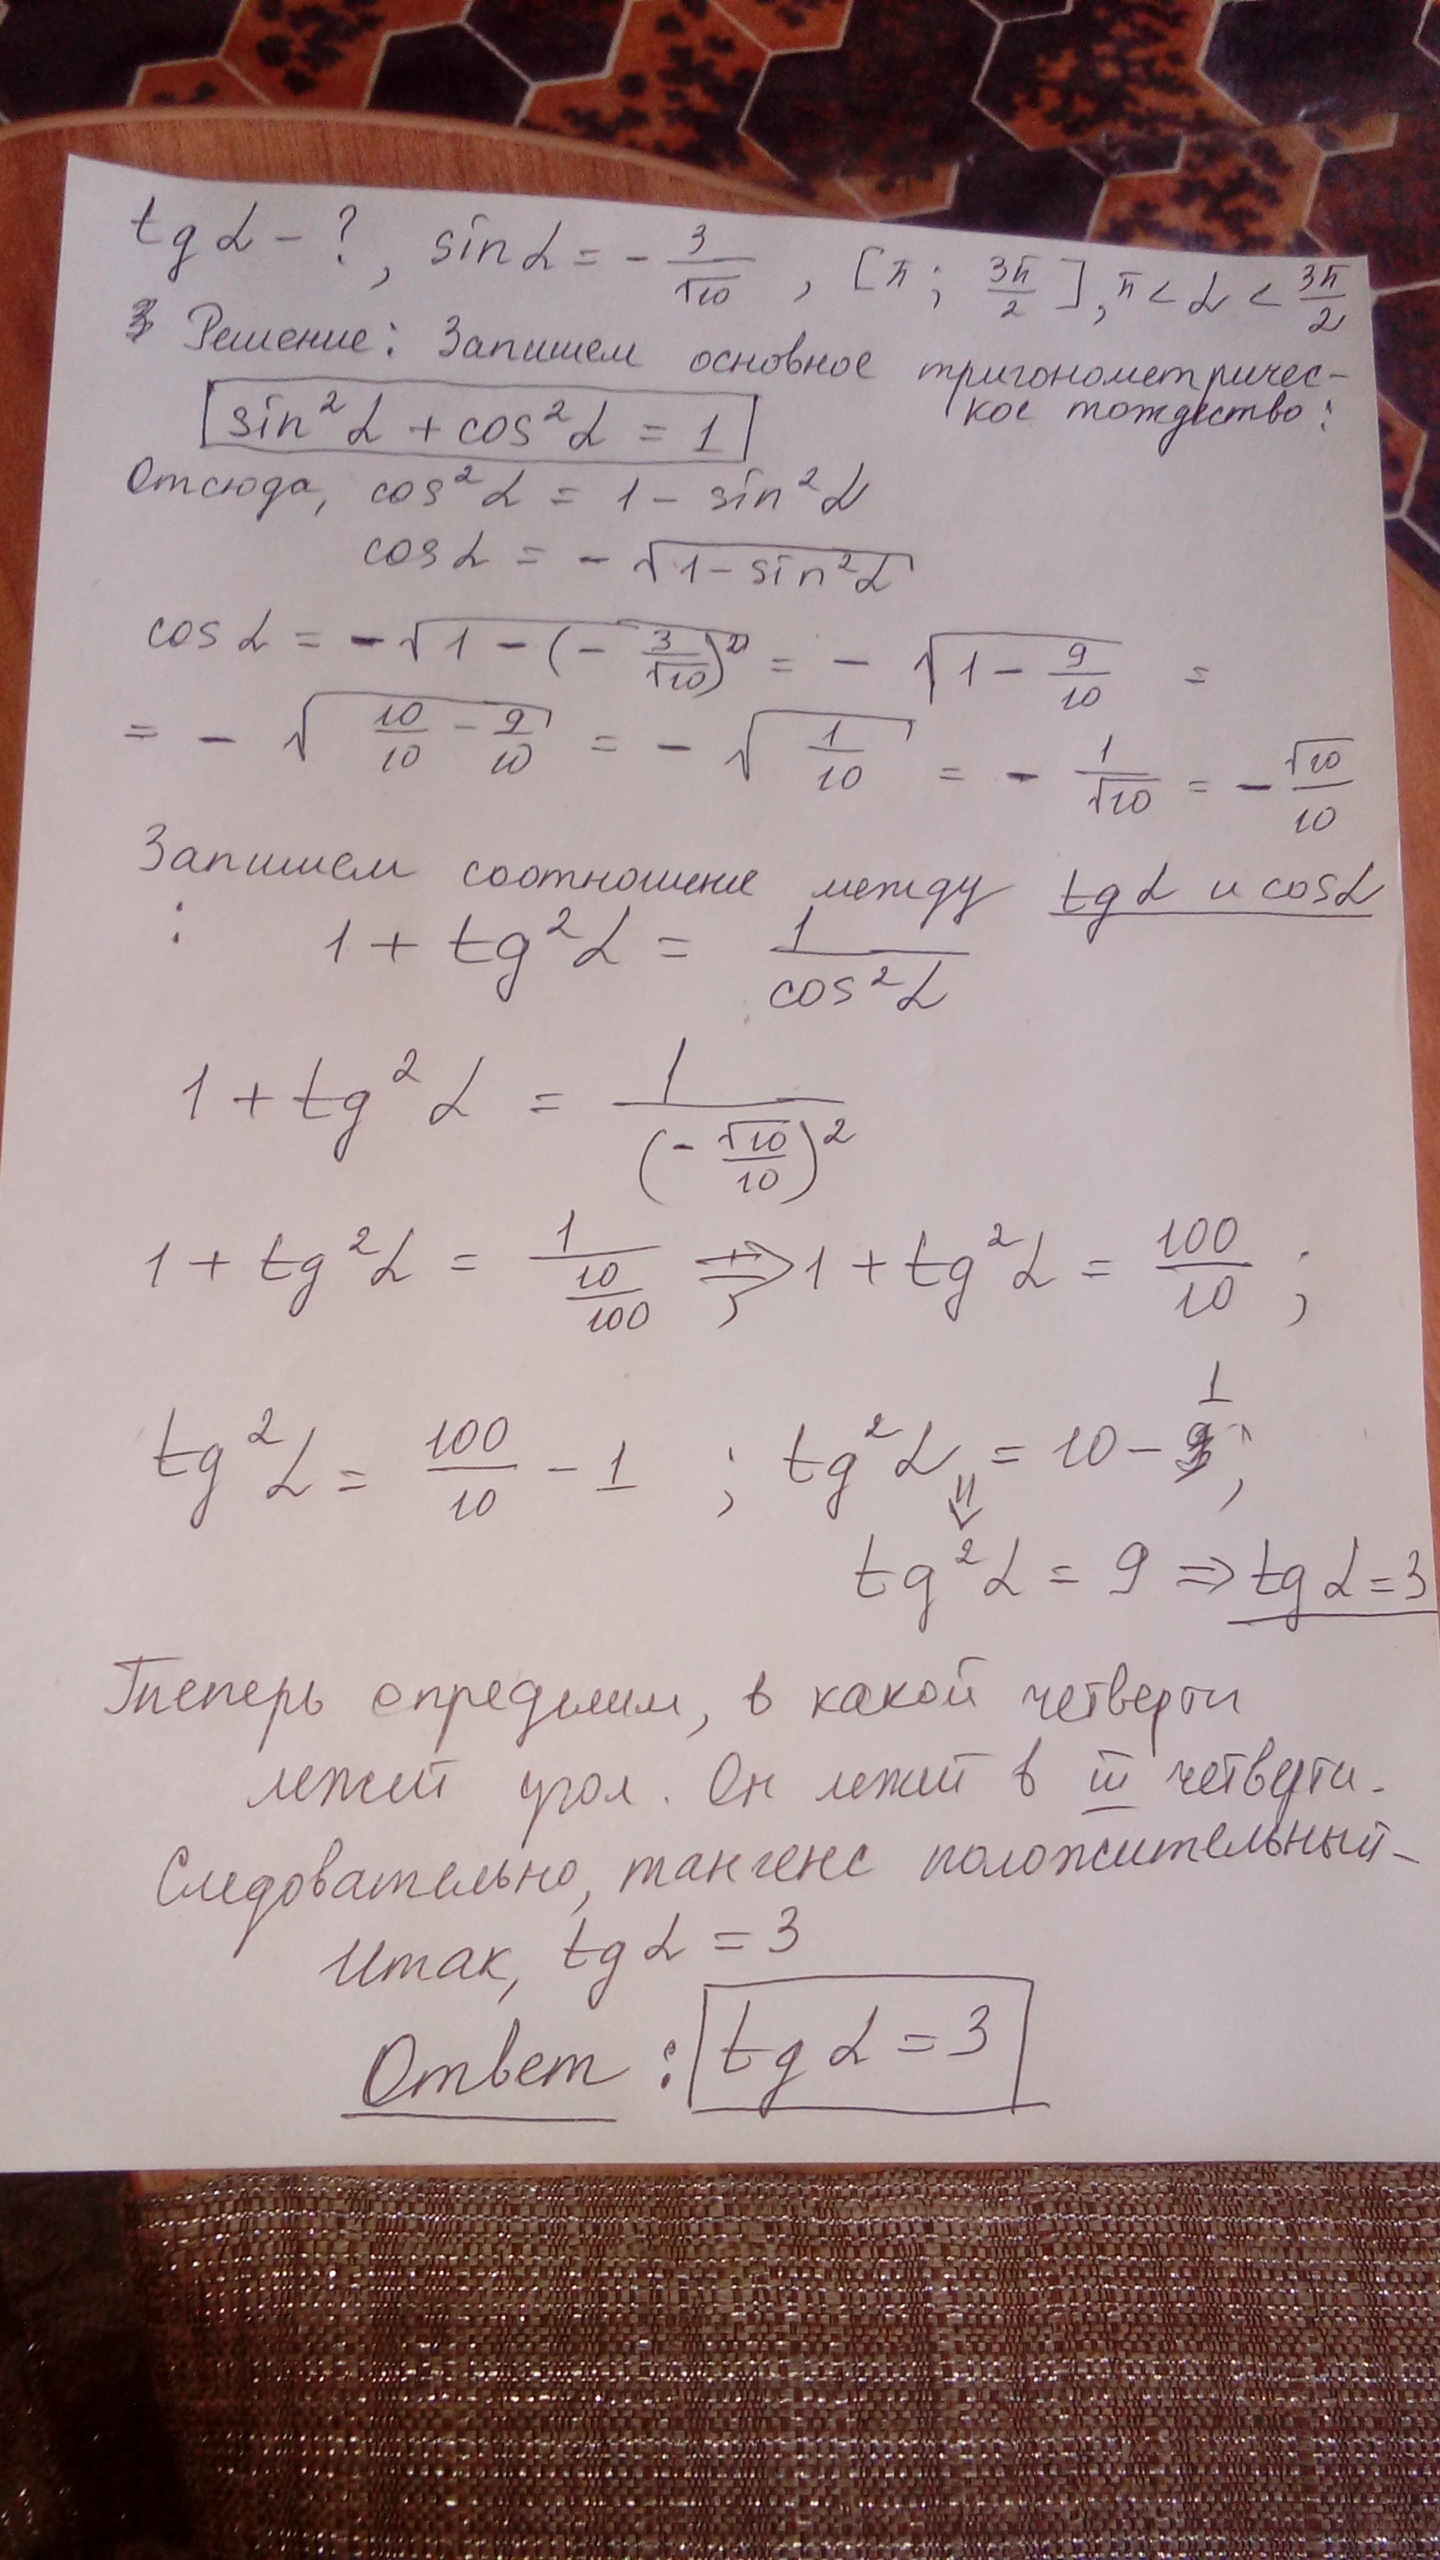 tg α - ?, sin α = - 3/√10, [π; 3π/2], π < α < 3π/2
Решение: Запишем основное тригонометричес-
кое тождество:
sin²α + cos²α = 1
Отсюда, cos²α = 1 - sin²α
cos α = - √(1 - sin²α)
cos α = - √(1 - (- 3/√10)²) = - √(1 - 9/10) =
= - √(10/10 - 9/10) = - √(1/10) = - 1/√10 = - √10/10
Запишем соотношение между tg α и cos α
: 1 + tg²α = 1/cos²α
1 + tg²α = 1/(- √10/10)²
1 + tg²α = 1/(10/100) ⇒; 1 + tg²α = 100/10;
tg²α = 100/10 - 1; tg²α = 10 - 1;
⇓
tg²α = 9 ⇒ tg α = 3
Теперь определим, в какой четверти
лежит угол. Он лежит в III четверти.
Следовательно, тангенс положительный.
Итак, tg α = 3
Ответ: tg α = 3